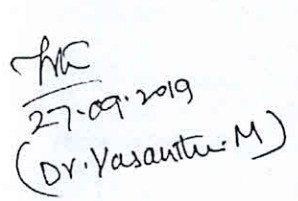 27.09.2019
(Dr. Vasanthu. M)